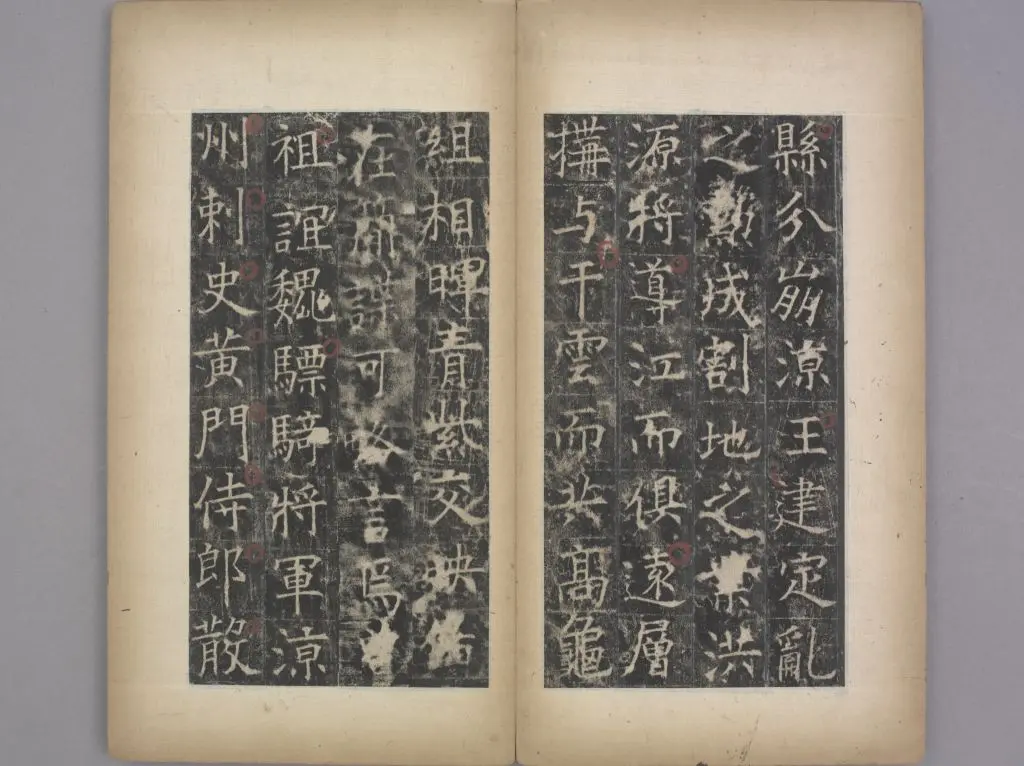 縣分崩涼王建定亂
之勳成割地之業洪
源將導江而俱遠層
搆与干雲而共高龜
組相暉青紫交映備
在諜可略言焉曾
祖誼魏驃騎將軍涼
州刺史黃門侍郎散